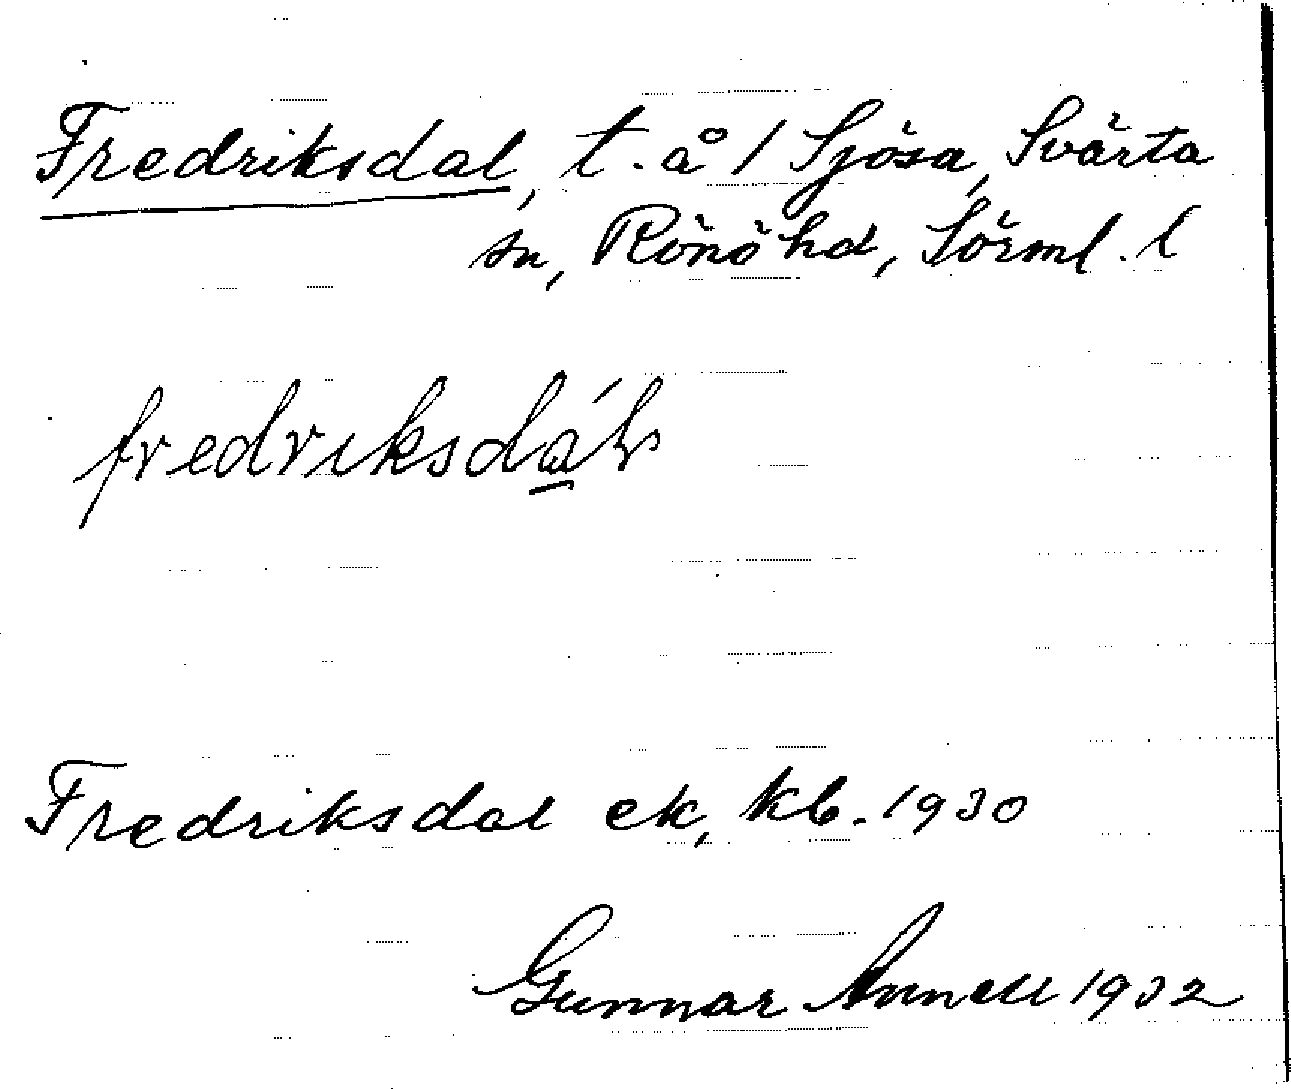 Fredriksdal, t. å 1 Sjösa, Svärta
sn, Rönö hd, Sörml. l
fredriksdál
Fredriksdal ek, kb. 1930
Gunnar Annell 1932